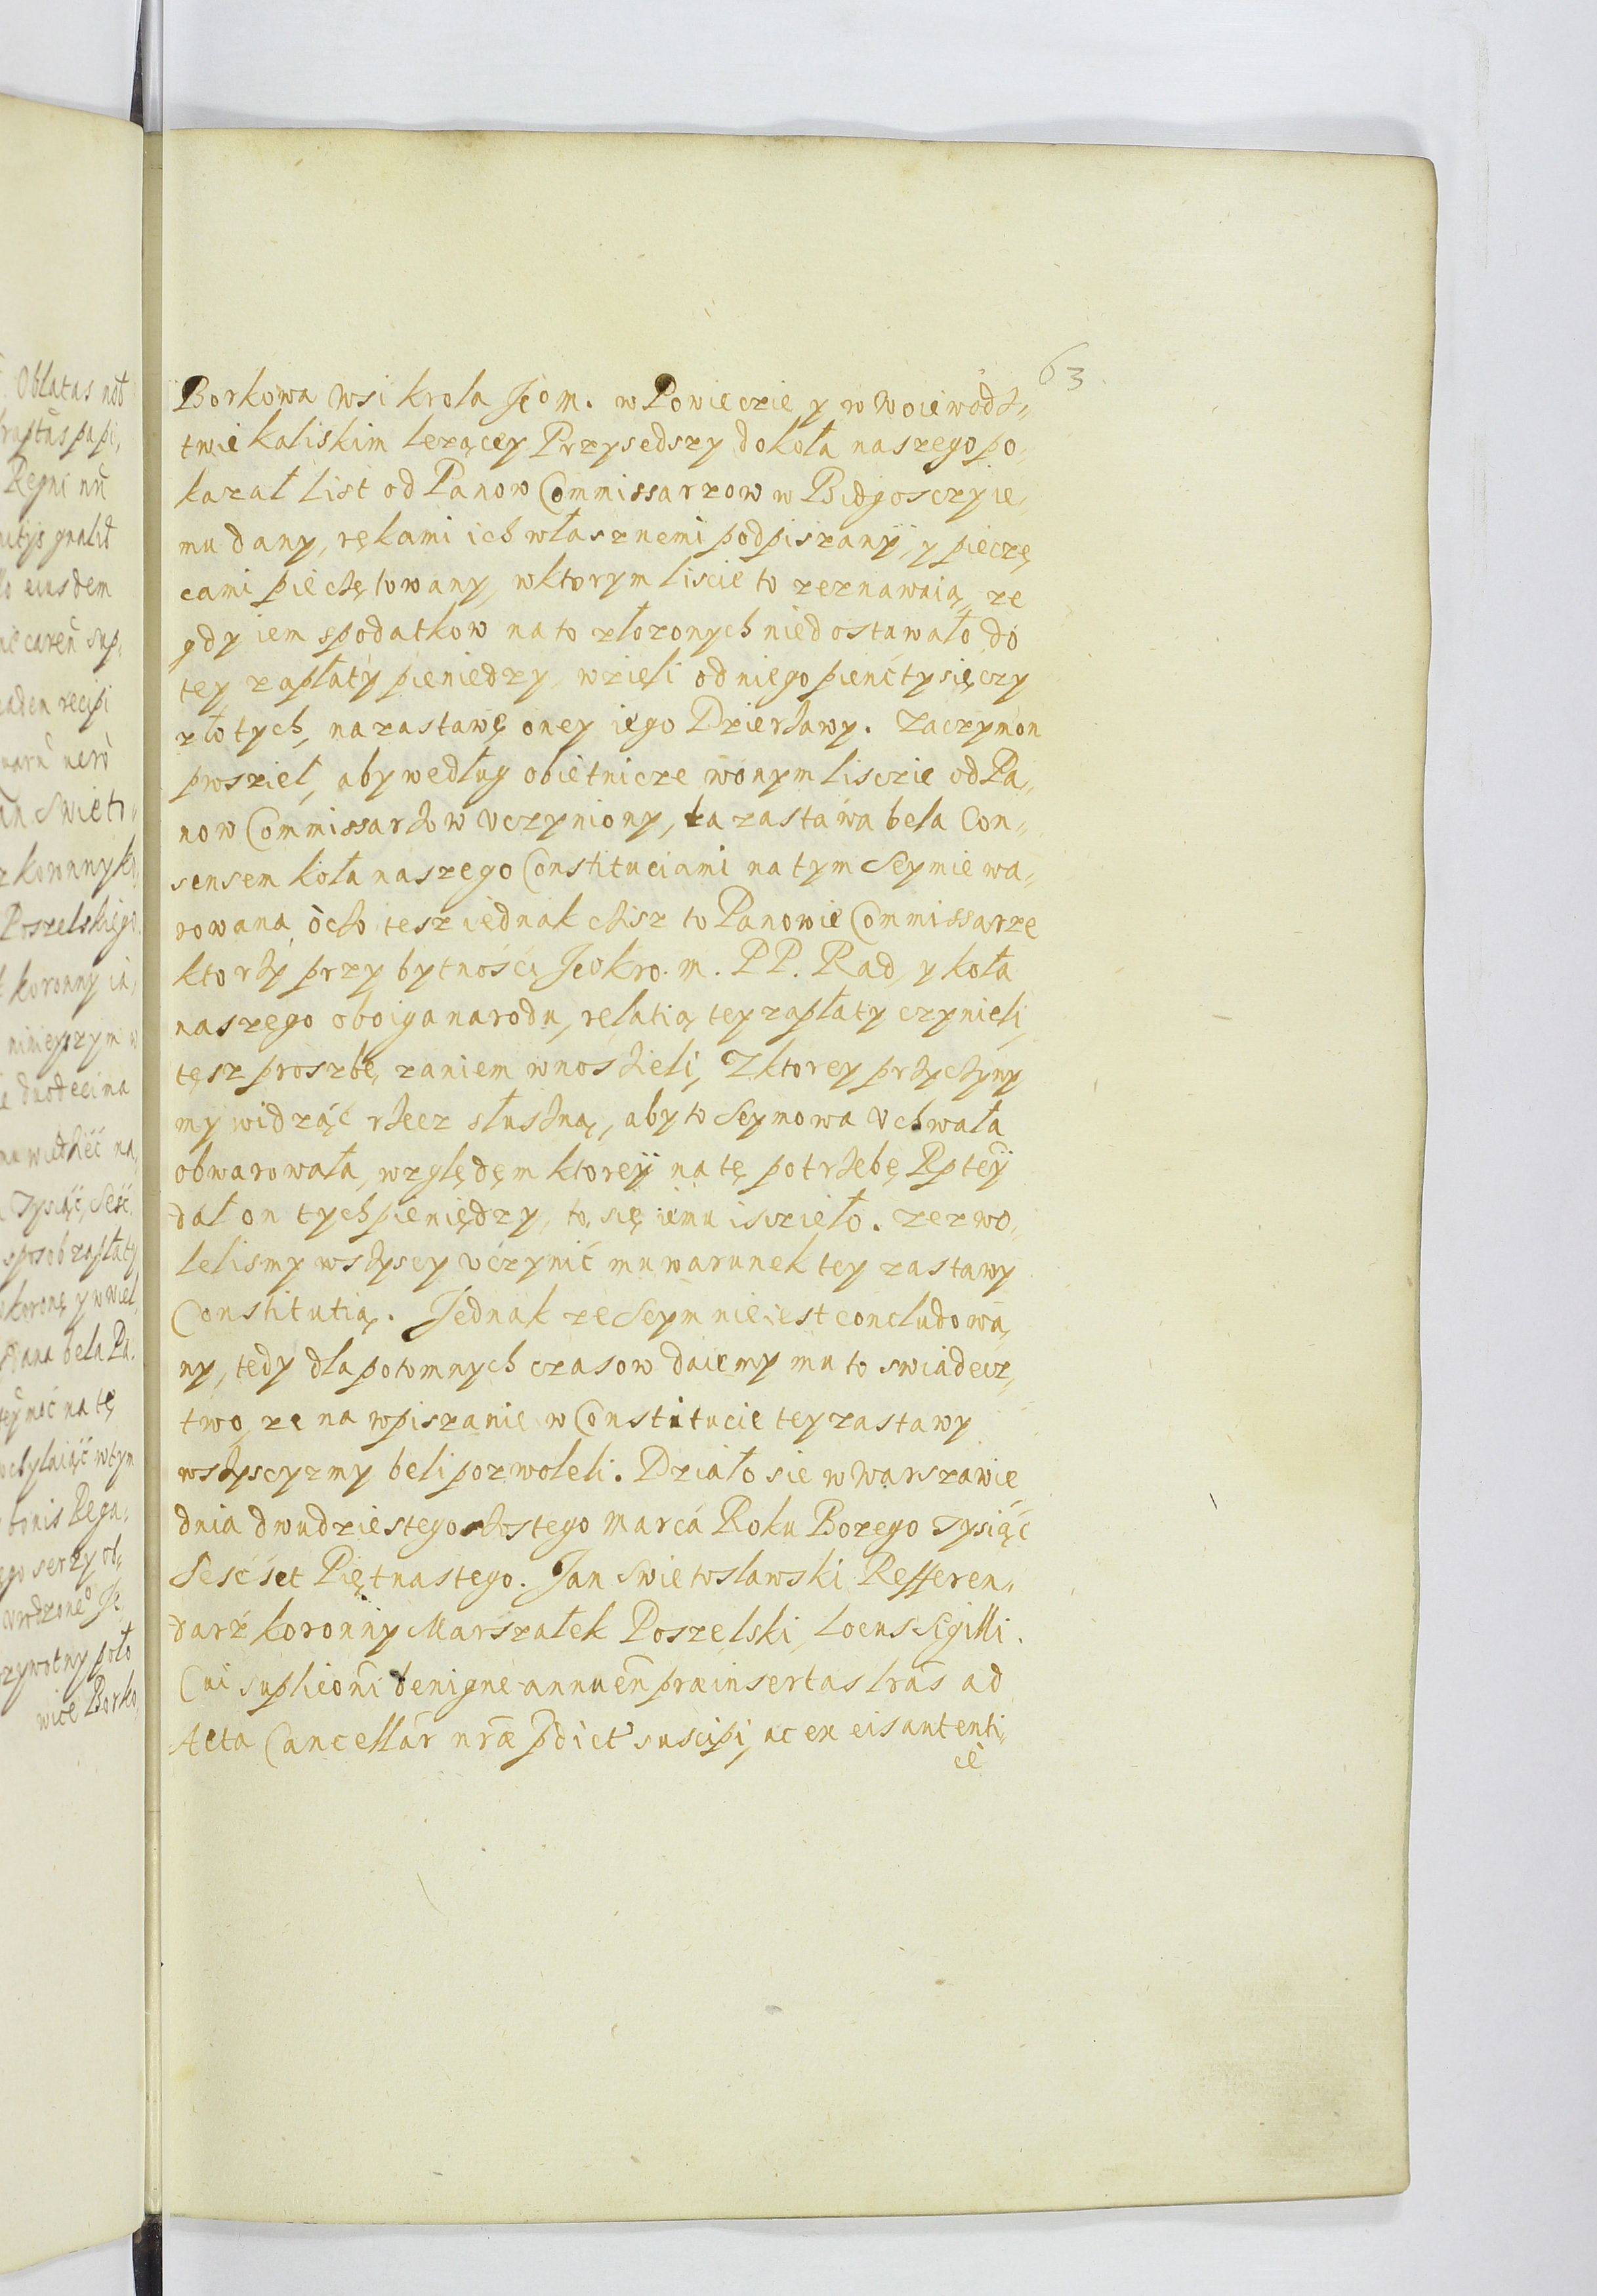 63
Borkowa wsi krola Jeo m. w Powieczie y w Woiewodz„
twie kaliskim lezącey Przysedszy do koła naszego po,
kazał List od Panow Commissarzow w Bidgosczy ie,
mu dany, rękami ich własznemi podpiszany, y pieczę
cami piechętowany, w ktorym liscie to zeznawaią, ze
gdy iem spodatkow na to złozonych niedostawało do
tey zapłaty pieniedzy, wzieli od niego pienć tysięczy
złotych, na zastawę oney iego Dzierżawy. Zaczym on
proszieł, aby według obietnicze w onym lisczie od Pa„
now Commissarżow vczyniony, ta zastawa beła Con„
sensem koła naszego Constituciami na tym Seymie wa„
rowana, o cżo tesz iednak cżisz to Panowie Commissarze
ktorży przy bytnośći Jeo kro. m. PP. Rad, y koła
naszego oboiga narodu, relatią tey zapłaty czynieli,
tęsz proszbę zaniem wnosżieli, Z ktorey prżycżyny
my widząć rżecz słusżną, aby to Seymowa Vchwała
obwarowała, względęm ktoreÿ na tę potrżebę Rptey
dał on tych pieniędzy, to się iemu isczieło. zezwo,
lelismy wsżyscy vczynić mu warunek tey zastawy
Constitutią. Jednak ze Seym nie iest concludowa,
ny, tedy dla potomnych czasow daiemy mu to swiadecz„
two, ze na wpiszanie w Constitucie tey zastawy
wsżyscyzmy beli pozwoleli. Działo sie w Warszawie
dnia dwudziestego sżostego Marca Roku Bozego Tysiąć
Sesćset Piętnastego. Jan Swietoslawski Refferen„
darż koronny Marszałek Poszelski, Locus Sigilli.
Cui suplicōni benigne annuēn præinsertas lrās ad
Acta Cancellār nræ pdict suscipi, ac ex eis autenti„
cè